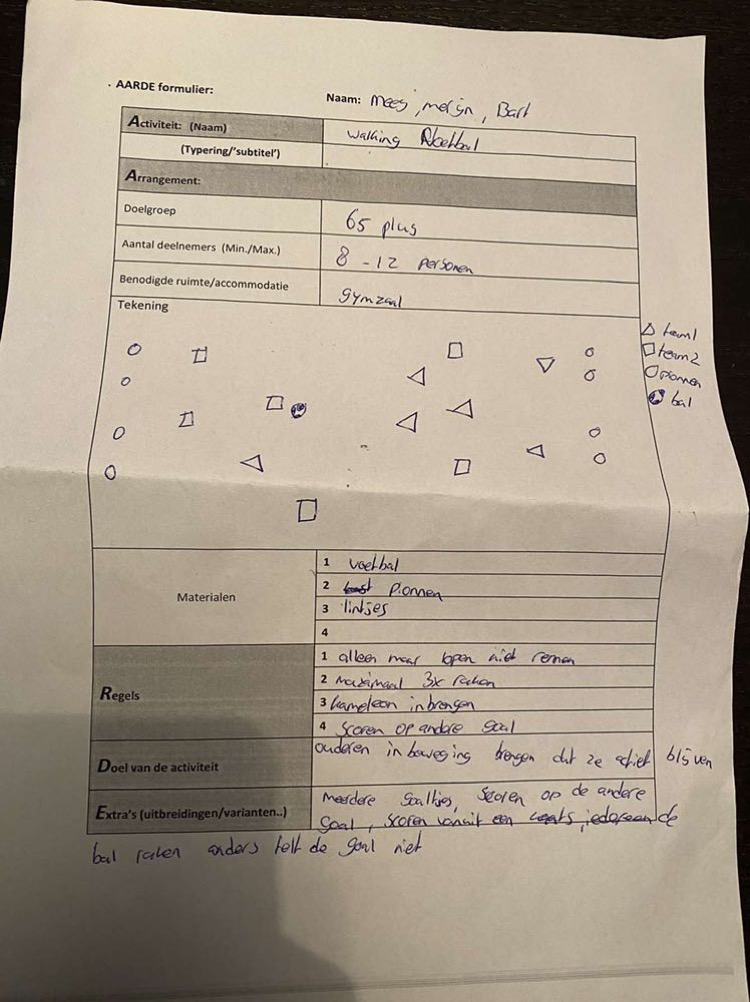 AARDE formulier:
Naam: Mees, merijn, Bart
Activiteit: (Naam)
walking voetbal
(Typering/'subtitel')
Arrangement:
Doelgroep
65 plus
Aantal deelnemers (Min./Max.)
8 - 12 personen
Benodigde ruimte/accommodatie
gymzaal
Tekening
team1
team2
pionnen
bal
Materialen
1 voetbal
2 pionnen
3 lintjes
4
Regels
1 alleen maar lopen niet rennen
2 maximaal 3x raken
3 kameleon inbrengen
4 scoren op andere goal
Doel van de activiteit
ouderen in beweging brengen dat ze actief blijven
Extra's (uitbreidingen/varianten..)
meerdere goaltjes, scoren op de andere
goal, scoren vanuit een, iedereen de
bal raken anders telt de goal niet